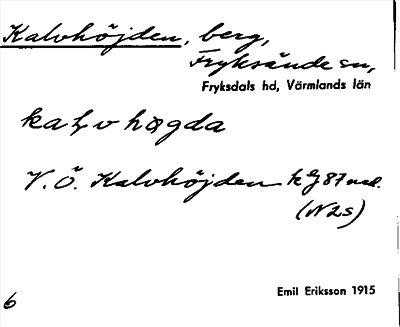 Kalvhöjden, berg,
Fryksände sn,
Fryksdals hd, Värmlands län
V. Ö. Kalvhöjden
(N2s)
Emil Eriksson 1915
6